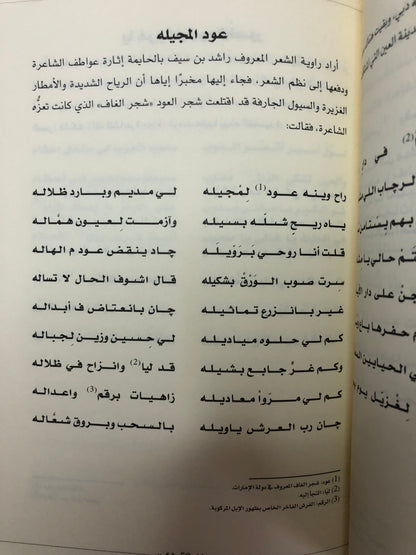 عود المجيله
أراد راوية الشعر المعروف راشد بن سيف بالحايمة إثارة عواطف الشاعرة
ودفعها إلى نظم الشعر، فجاء إليها مخبرًا إياها أن الرياح الشديدة والأمطار
الغزيرة والسيول الجارفة قد اقتلعت شجر العود «شجر الغاف» الذي كانت تعزُّه
الشاعرة، فقالت:
راح وينه عود(1) لِمجيله لي مديم وبارد ظلاله
ياه ريح شلّه بسيله وآزمت لِعيون همّاله
قلت أنا روحي بَرَوّيلَه چاد ينقض عود م الهاله
سِرت صوب الوَرْقْ بشكيله قال اشوف الحال لا تساله
غير بانزرع تماثيله چان بانعتاض ف أبداله
كم لي حلوه مياديله لي حِسين وزين لجباله
وكم غرٍّ جابع بشيله قد ليا(2) وانزاح في ظلاله
كم لي مرّوا معاديله زاهيات برقم(3) واعداله
چان رب العرش ياويله بالسحب وبروق شعّاله
(1) عود: شجر الغاف المعروف في دولة الإمارات.
(2) ليا: التجأ إليه.
(3) الرقم: الفرش الفاخر الخاص بظهور الإبل المركوبة.
(2) في دار
لرجاب اللي
بهم يستامن
تم حالي يا
جن على دار
م حفرها
ي الحيابين
لغزيل يوم